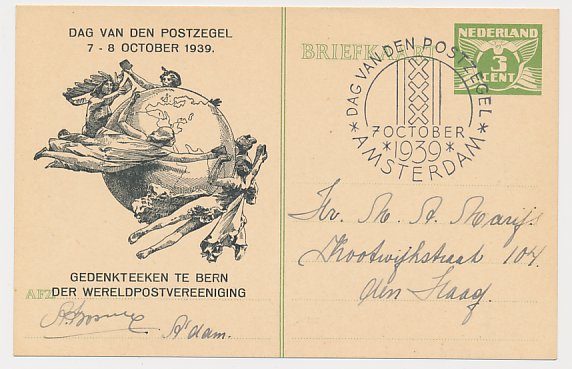 DAG VAN DEN POSTZEGEL
7 - 8 OCTOBER 1939.
GEDENKTEEKEN TE BERN
DER WERELDPOSTVEREENIGING
AFZ
A'dam.
BRIEFKAART
NEDERLAND
3
CENT
* DAG VAN DEN POSTZEGEL *
7 OCTOBER
*1939*
AMSTERDAM
Hr. M. A.
Kootwijkstraat 104
den Haag.